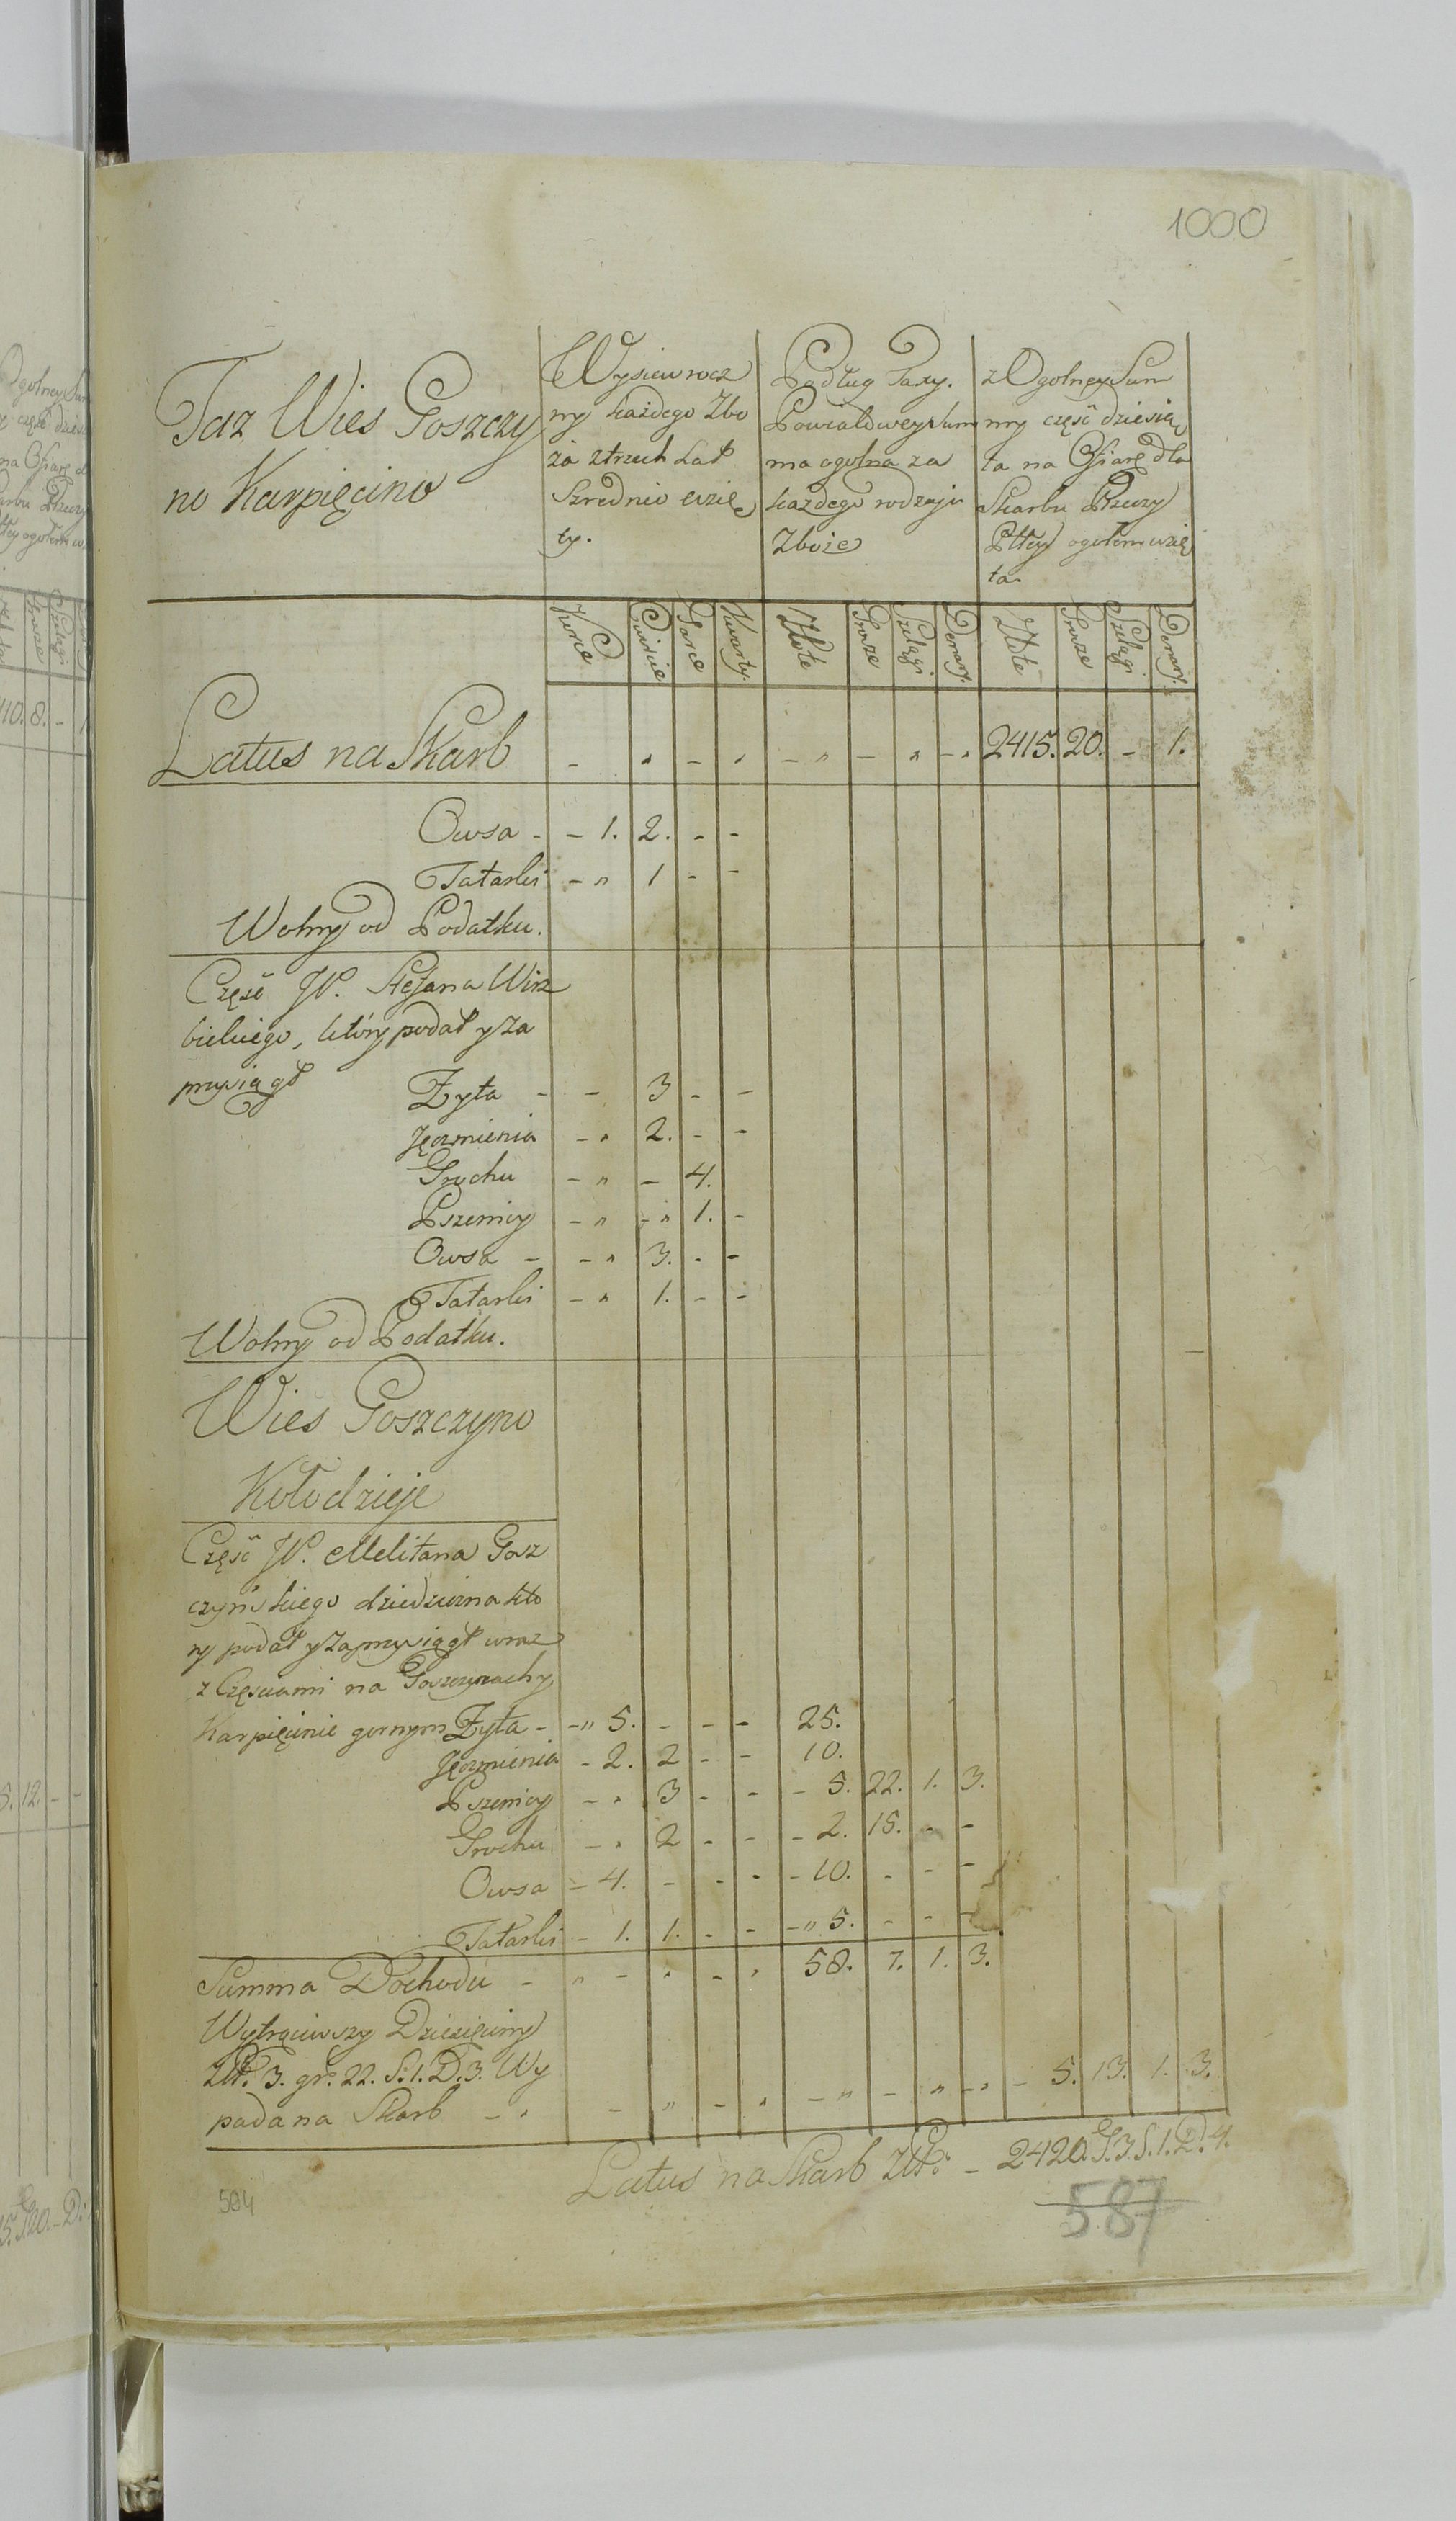 1000
Taz Wies Goszczy
no Karpięcino
Wysiew rocz
ny każdego Zbo
ża z trzech Lat
Szrednio wzię
ty.
Podług Taxy.
Powiatowey Sum
ma ogolna za
każdego rodzaju
Zboże
z Ogolney Sum
my część dziesią
ta na Ofiarę dla
Skarbu Rzeczy
Pltey ogołem wzię
ta.
Korce Cwierce Garce Kwarty. Złote Grosze Szelągi Denary. Złote Grosze Szelągi Denary.
Latus na Skarb - „ - „ - „ - „ - „ 2415. 20. - 1.
Owsa - - 1. 2. - -
Tatarki - „ 1 - -
Wolny od Podatku.
Część JP. Stefana Wirz
bickiego, który podał y za
przysiągł
Żyta - - 3 - -
Jęczmienia - „ 2. - -
Grochu - „ - 4.
Pszenicy - „ - „ 1. -
Owsa - - „ 3. - -
Tatarki - „ 1. - -
Wolny od Podatku.
Wies Goszczyno
Kołodzieje
Częsć JP. Melitana Gosz
czyńskiego dziedziczna kto
ry podał y zaprzysiągł wraz
z Częsciami na Goszczynach y
Karpięcinie gornym Żyta - - „ 5. - - - 25.
Jęczmienia - 2. 2 - - 10.
Pszenicy - „ 3 - - - 5. 22. 1. 3.
Grochu - „ 2 - - - 2. 15. - -
Owsa - 4. - - - - 10. - - -
Tatarki - 1. 1. - - - „ 5. - - -
Summa Dochodu - „ - „ - „ 58. 7. 1. 3.
Wytrąciwszy Dziesięciny
Złt. 3. gr. 22. S. 1. D. 3. Wy
pada na Skarb - „ - „ - „ - „ - „ - „ - 5. 13. 1. 3.
Latus na Skarb Złt: - 2420. G. 3. S. 1. D. 4.
504
587